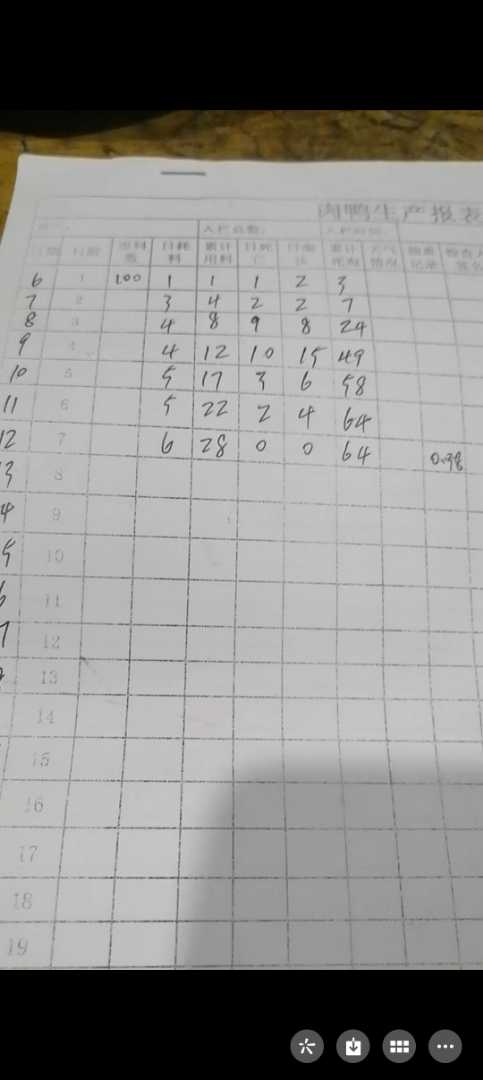 肉鸭生产报表
入栏总数:
日龄 日耗料 累计用料 日死亡 累计
6 1 100 1 1 1 2 3
7 2 3 4 2 2 7
8 3 4 8 9 8 24
9 4 4 12 10 15 49
10 5 5 17 3 6 58
11 6 5 22 2 4 64
12 7 6 28 0 0 64 0.38
3 8
4 9
5 10
11
7 12
13
14
15
16
17
18
19